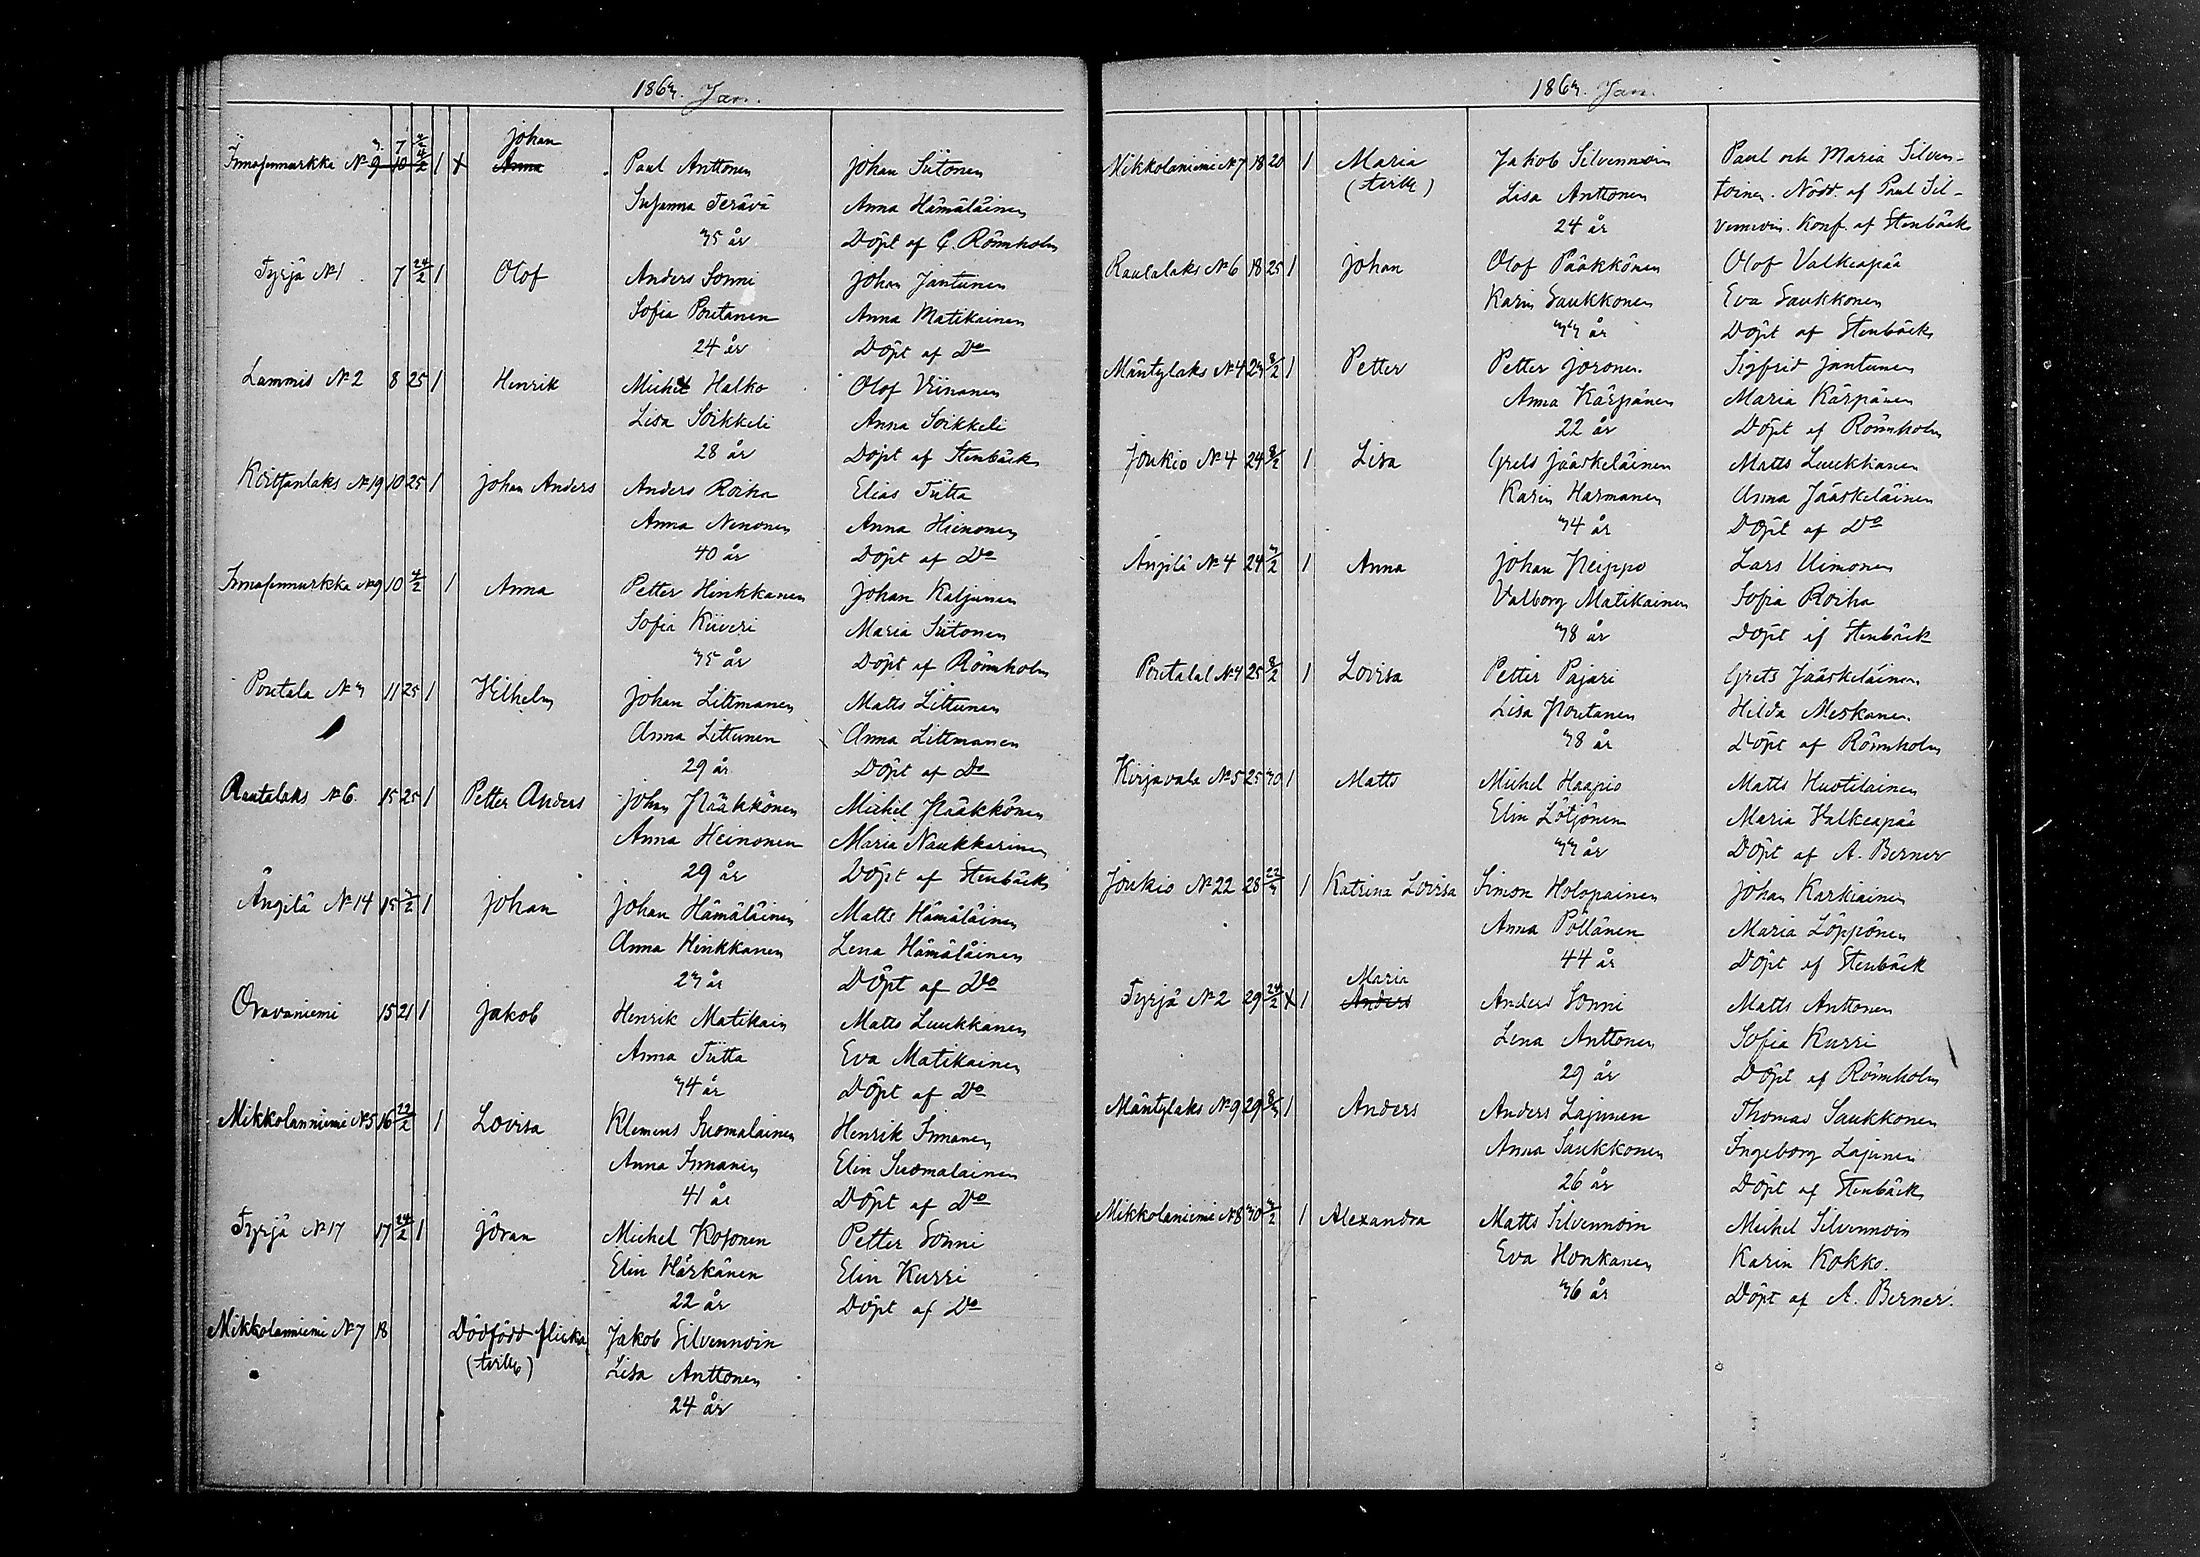 1863. Jan.
Johan
3. 7 2/2
Innasenmurkka № 9 10 4/2 1 x Anna Paul Anttonen Johan Siitonen
Susanna Terävä Anna Hämäläinen
35 år Döpt af C. Rönnholm
Tyrjä № 1 7 24/2 1 Olof Anders Sonni Johan Jantunen
Sofia Poutanen Anna Matikainen
24 år Döpt af Do
Lammis № 2 8 25 1 Henrik Michel Halko Olof Viinanen
Lisa Soikkeli Anna Soikkeli
28 år Döpt af Stenbäck
№ 19 10 25 1 Johan Anders Anders Roiha Elias Tiitta
Anna Nenonen Anna Hienonen
40 år Döpt af Do
Innasenmurkka № 9 10 4/2 1 Anna Petter Hinkkanen Johan Kaljunen
Sofia Kiiveri Maria Siitonen
35 år Döpt af Rönnholm
Poutala № 3 11 25 1 Vilhelm Johan Littmanen Matts Littunen
Anna Littunen Anna Littmanen
29 år Döpt af Do
Rautalaks № 6 15 25 1 Petter Anders Johan Pääkkönen Michel Pääkkönen
Anna Heinonen Maria Naukkarinen
29 år Döpt af Stenbäck
Ängilä № 14 15 3/2 1 Johan Johan Hämäläinen Matts Hämäläinen
Anna Hinkkanen Lena Hämäläinen
23 år Döpt af Do
Oravaniemi 15 21 1 Jakob Henrik Matikain Matts Luukkanen
Anna Tiitta Eva Matikainen
34 år Döpt af Do
Mikkolanniemi № 5 16 22/2 1 Lovisa Klemens Suomalainen Henrik Immanen
Anna Immanen Elin Suomalainen
41 år Döpt af Do
Tyrjä № 17 17 24/2 1 Jöran Michel Kosonen Petter Sonni
Elin Härkänen Elin Kurri
22 år Döpt af Do
Mikkolanniemi № 7 18 Dödfödd flicka Jakob Silvennoin
(tvill.) Lisa Anttonen
24 år
1863. Jan.
Mikkolaniemi № 7 18 20 1 Maria Jakob Silvennoin Paul och Maria Silven-
(tvill.) Lisa Anttonen toinen. Nödd. af Paul Sil-
24 år vennoin. Konf. af Stenbäck
Rautalaks № 6 18 25 1 Johan Olof Pääkkönen Olof Valkeapää
Karin Saukkonen Eva Saukkonen
33 år Döpt af Stenbäck
Mäntylaks № 4 23 8/2 1 Petter Petter Joronen Sigfrid Jantunen
Anna Kärpänen Maria Kärpänen
22 år Döpt af Rönnholm
Joukio № 4 24 8/2 1 Lisa Grels Jääskeläinen Matts Luukkanen
Karin Harmanen Anna Jääskeläinen
34 år Döpt af Do
Ängilä № 4 24 3/2 1 Anna Johan Neippo Lars Uimonen
Valborg Matikainen Sofia Roiha
38 år Döpt af Stenbäck
№ 4 25 8/2 1 Lovisa Petter Pajari Grets Jääskeläinen
Lisa Poutanen Hilda Meskanen
38 år Döpt af Rönnholm
Kirjavala № 5 25 30 1 Matts Michel Haapio Matts Huotilainen
Elin Lötjönen Maria Valkeapää
33 år Döpt af A. Berner
Joukio № 22 28 22/3 1 Katrina Lovisa Simon Holopainen Johan Karkiainen
Anna Pöllänen Maria Löppönen
44 år Döpt af Stenbäck
Maria
Tyrjä № 2 29 24/2 x 1 Anders Anders Sonni Matts Anttonen
Lena Anttonen Sofia Kurri
29 år Döpt af Rönnholm
Mäntylaks № 9 29 8/3 1 Anders Anders Lajunen Thomas Saukkonen
Anna Saukkonen Ingeborg Lajunen
26 år Döpt af Stenbäck
Mikkolaniemi № 8 30 3/2 1 Alexandra Matts Silvennoin Michel Silvennoin
Eva Honkanen Karin Kokko.
36 år Döpt af A. Berner.